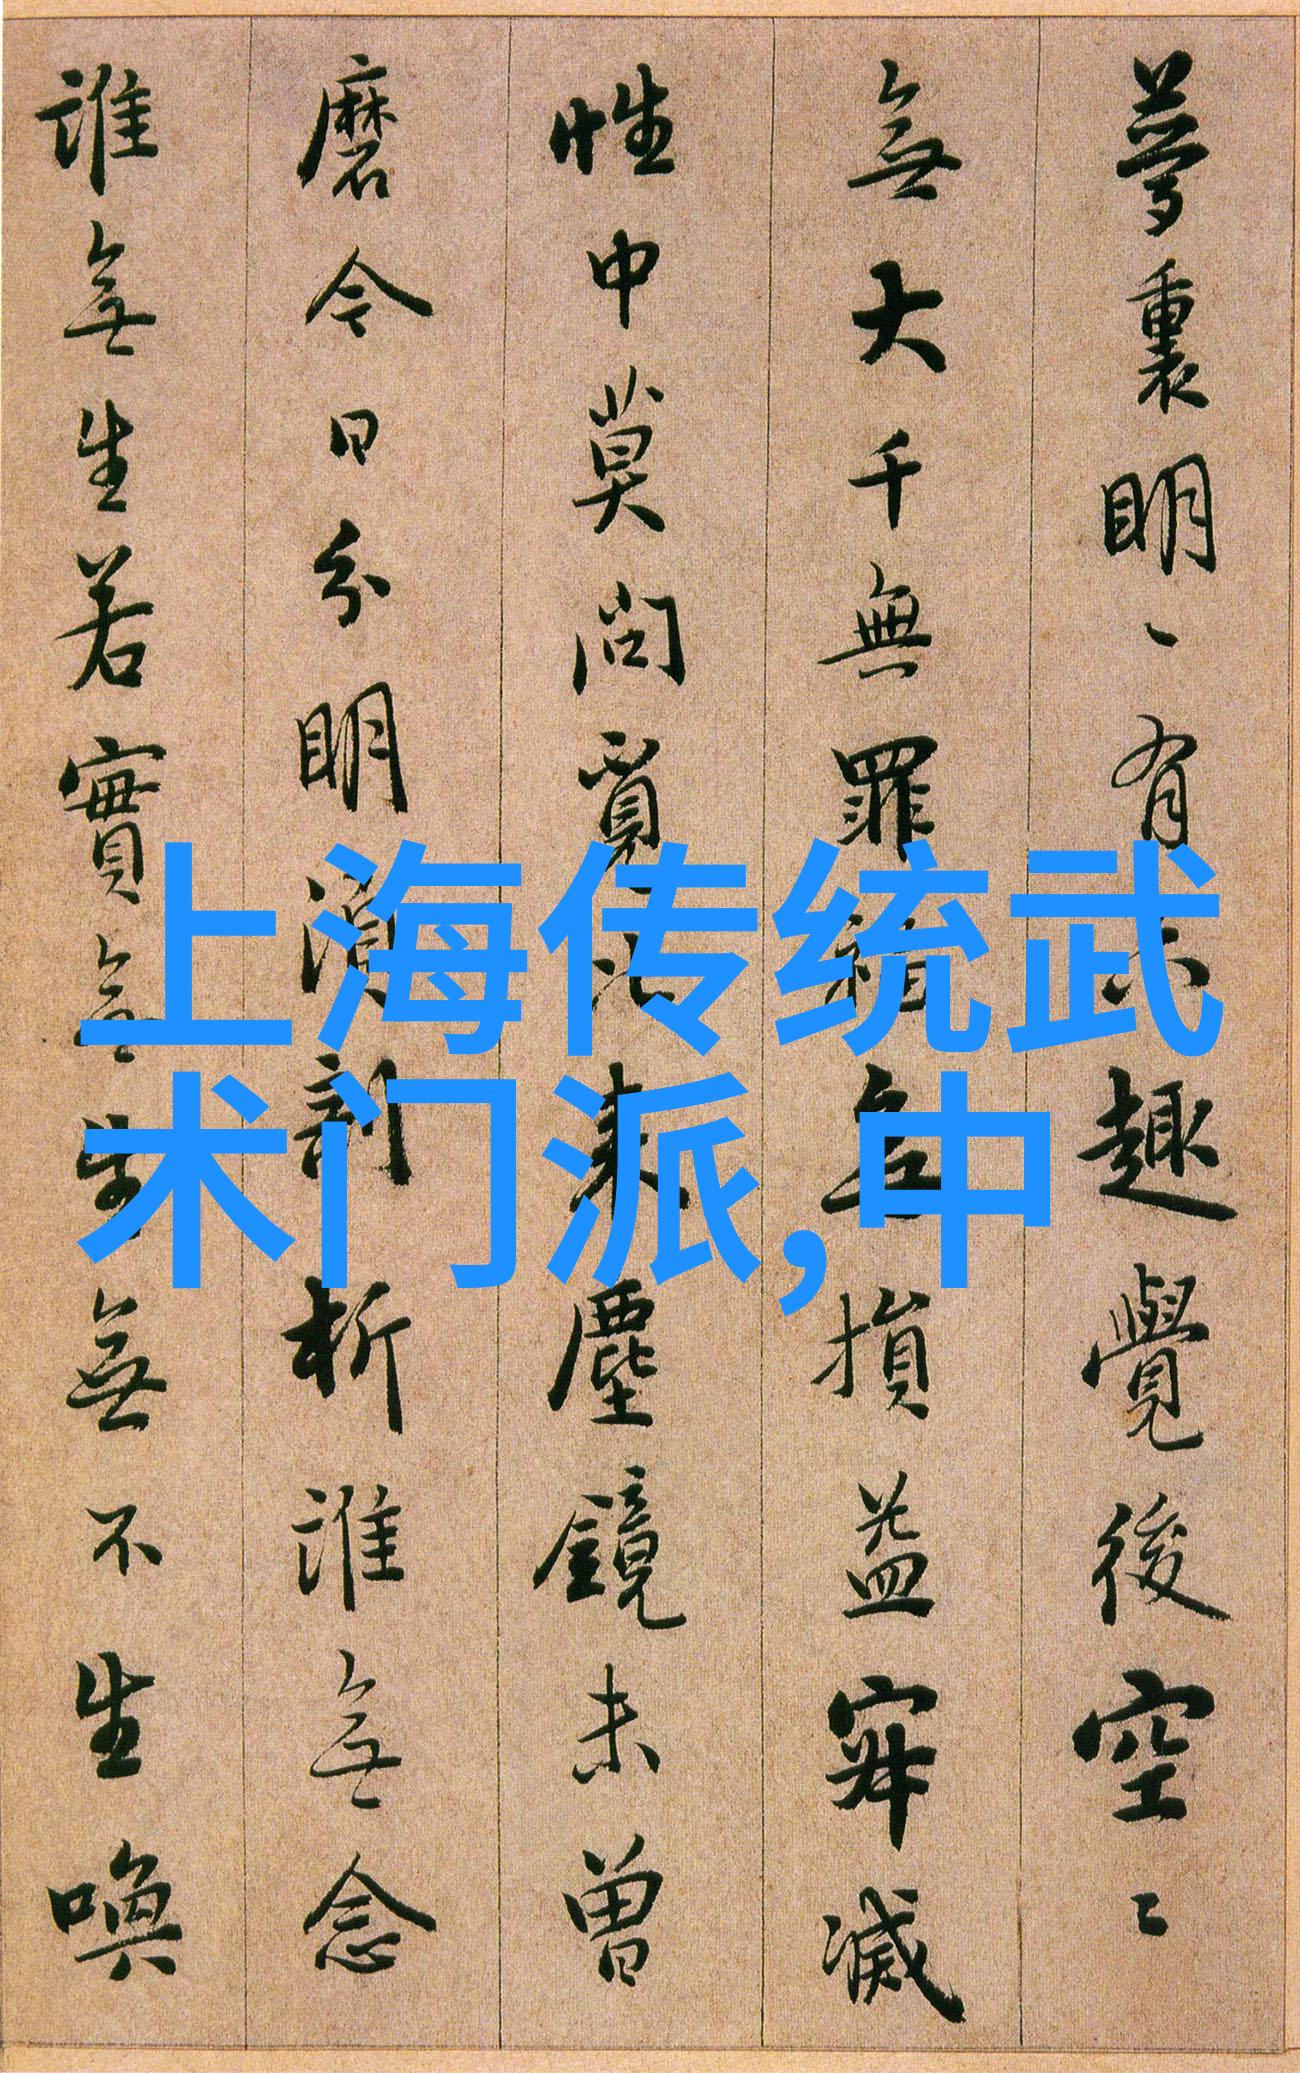 夢裏明丶有六趣覺後空〻
無大千無罪福無損益寂滅
性中莫問覓比來塵鏡未曾
磨今日分明須剖析誰無念
誰無生若實無生無不生喚
上海传统武
术门派,中